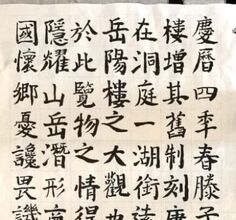 慶曆四季春滕子
樓增其舊制刻唐
在洞庭一湖銜遠
岳陽樓之大觀也
於此覽物之情得
隱耀山岳潛形商
國懷鄉憂讒畏譏